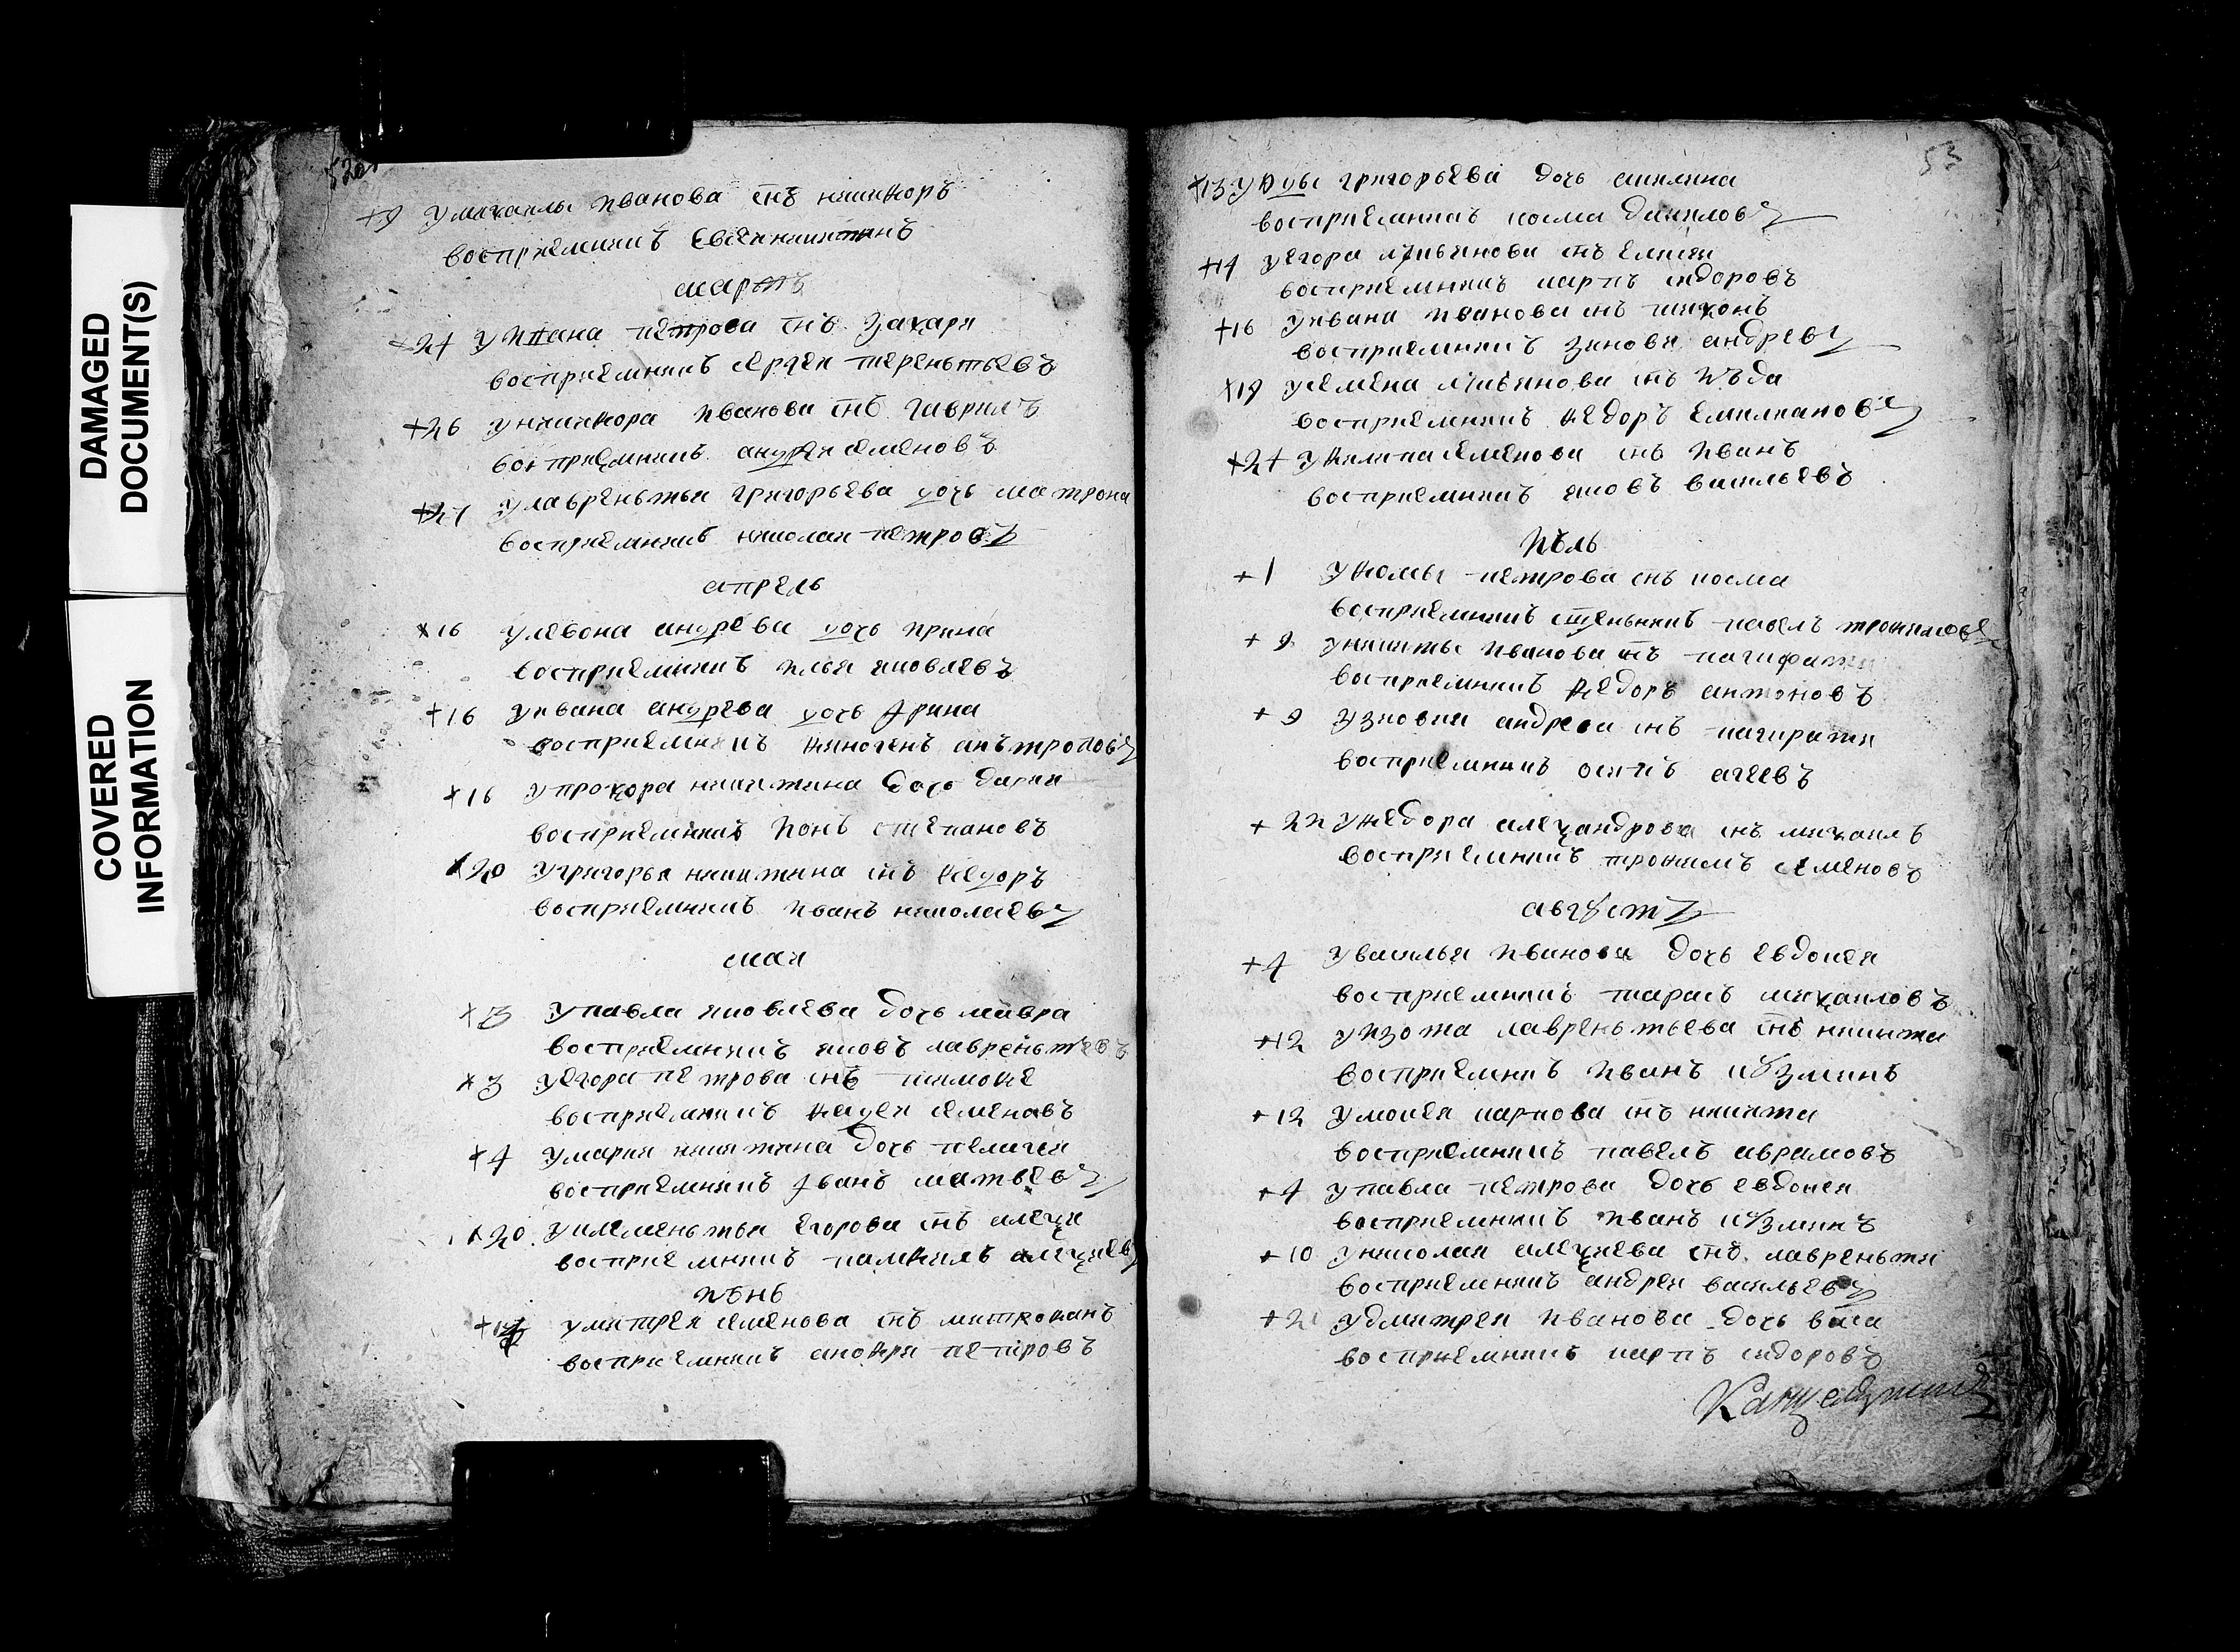 DAMAGED
DOCUMENT(S)
COVERED
INFORMATION
52об
+9 у михаилы иванова снъ никиѳоръ
восприемникъ евсей никитинъ
мартъ
+24 у ивана петрова снъ захари
восприемникъ сергеи тереньтьевъ
+26 у никиѳора иванова снъ гаврилъ
восприемникъ андреи семеновъ
+27 у лавреньтьи григорьева дочь матрона
восприемникъ николаи петровъ
апрель
+16 у левона андрева дочь ирина
восприемникъ илья яковлевъ
+16 у ивана андрева дочь ирина
восприемникъ антроповъ
+16 у прохора никитина дочь дария
восприемникъ ионъ степановъ
+20 у григорья никитина снъ ѳедоръ
восприемникъ иванъ николаевъ
маи
+3 у павла яковлева дочь мавра
восприемникъ яковъ лавреньтьевъ
+3 у егора петрова снъ тимоѳе
восприемникъ ѳадеи семеновъ
+4 у марки никитина дочь пелагея
восприемникъ иванъ матвевъ
+20 у клеменьтьи егорова снъ алеѯе
восприемникъ памѳилъ алеѯиевъ
июнь
у митрея семенова снъ митроѳанъ
восприемникъ оноѳри петровъ
53
+13 у григорьева дочь акилина
восприемникъ косма даниловъ
+14 у егора лукьянова снъ елисеи
восприемникъ карпъ сидоровъ
+16 у ивана иванова снъ тихонъ
восприемникъ зиновеи андревъ
+19 у семена лукьянова снъ июда
восприемникъ ѳедоръ емилиановъ
+24 у ѳилипа семенова снъ иванъ
восприемникъ яковъ васильевъ
июль
+1 у ѳомы петрова снъ косма
восприемникъ павелъ троѳимовъ
+9 у никиты иванова снъ
восприемникъ ѳедоръ антоновъ
+9 у зиновия андрева снъ
восприемникъ осипъ агеевъ
+22 у ѳедора алеѯандрова снъ михаилъ
восприемникъ троѳимъ семеновъ
августъ
+4 у василья иванова дочь евдокея
восприемникъ тарасъ михаиловъ
+12 у изота лавреньтьева снъ никита
восприемникъ иванъ кузминъ
+12 у мосея карпова снъ никита
восприемникъ павелъ аврамовъ
+4 у павла петрова дочь евдокея
восприемникъ иванъ кузминъ
+10 у николая алеѯиева снъ лавреньти
восприемникъ андреи васильевъ
у дмитрея иванова дочь васа
восприемникъ карпъ сидоровъ
Канцеляристъ